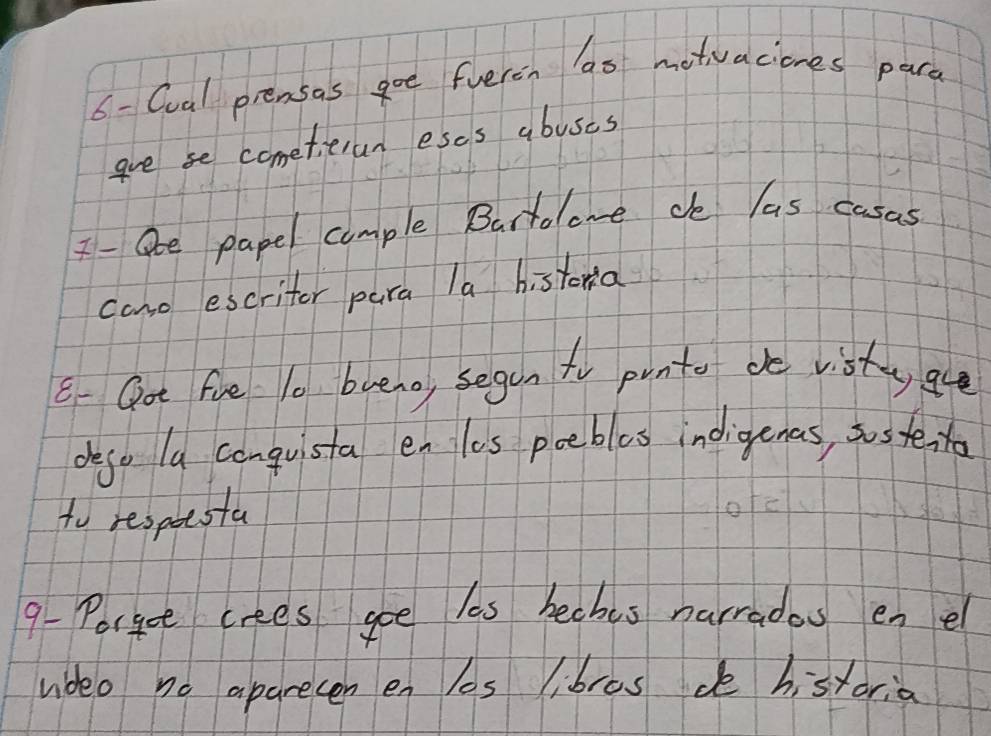 6- Cual piensas que fuerón las motivaciones para
que se cometieran esos abusos
7- Que papel cumple Bartolome de las casas
como escritor para la historia
8- Que fue lo bueno, segun tu punto de vista, que
dejo la conquista en los pueblos indigenas, sustenta
tu respuesta
9- Porque crees que los hechos narrados en el
video no aparecen en los libros de historia